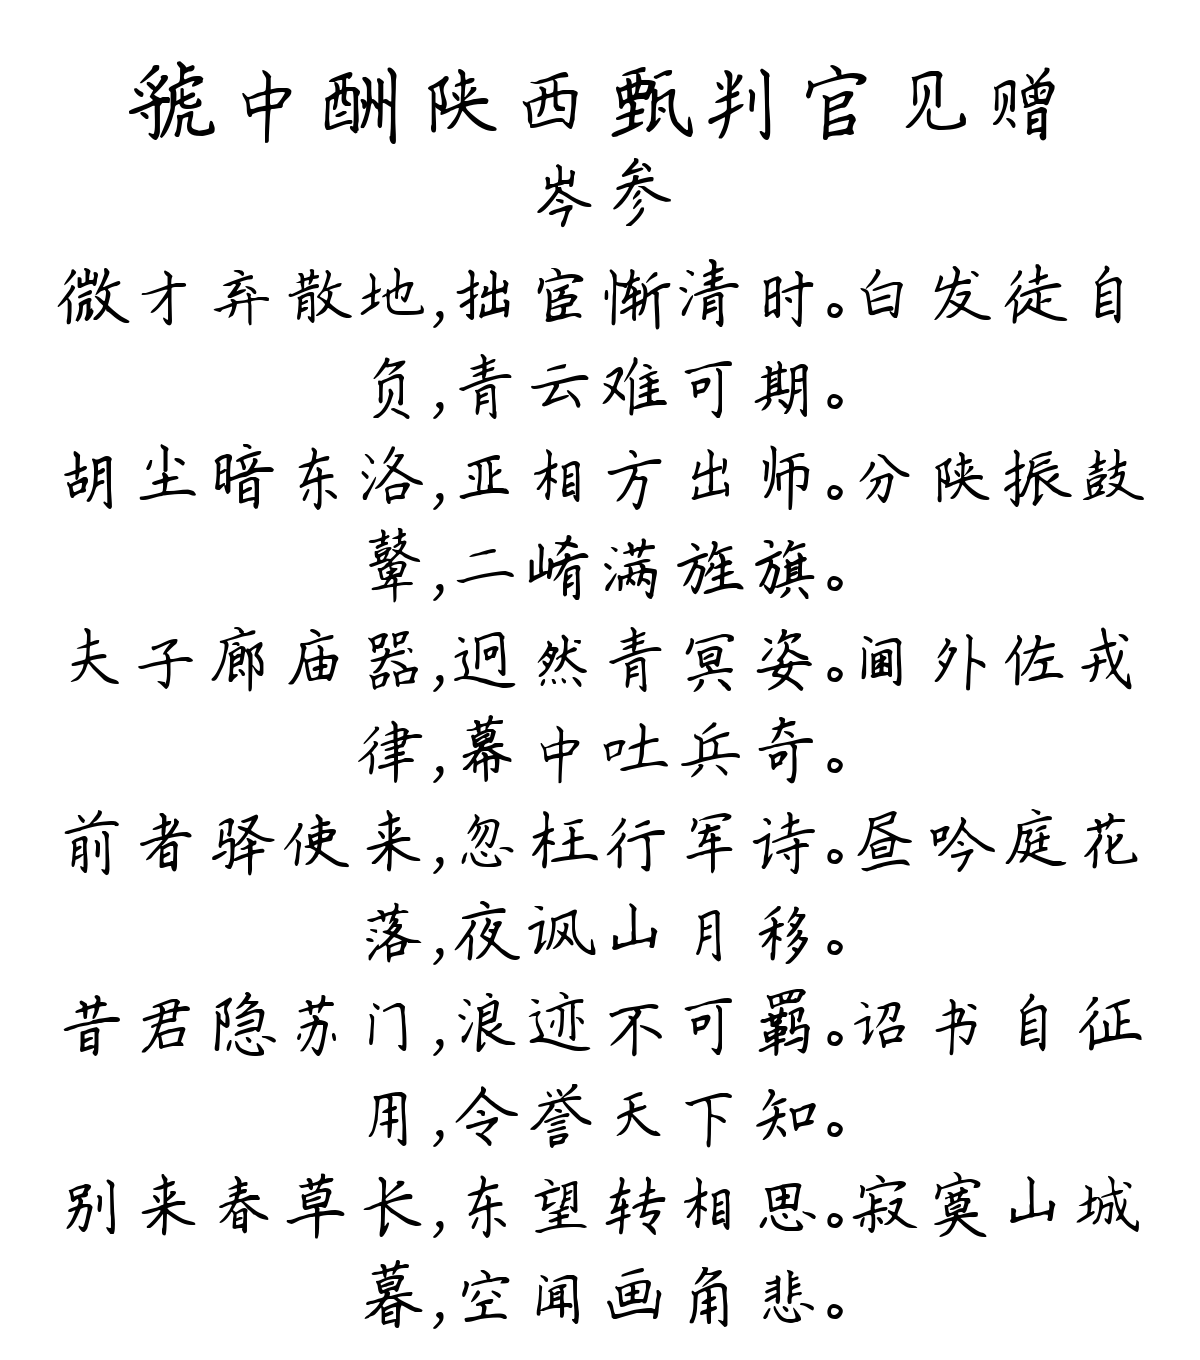 虢中酬陕西甄判官见赠
岑参
微才弃散地,拙宦惭清时。白发徒自
负,青云难可期。
胡尘暗东洛,亚相方出师。分陕振鼓
鼙,二崤满旌旗。
夫子廊庙器,迥然青冥姿。阃外佐戎
律,幕中吐兵奇。
前者驿使来,忽枉行军诗。昼吟庭花
落,夜讽山月移。
昔君隐苏门,浪迹不可羁。诏书自征
用,令誉天下知。
别来春草长,东望转相思。寂寞山城
暮,空闻画角悲。